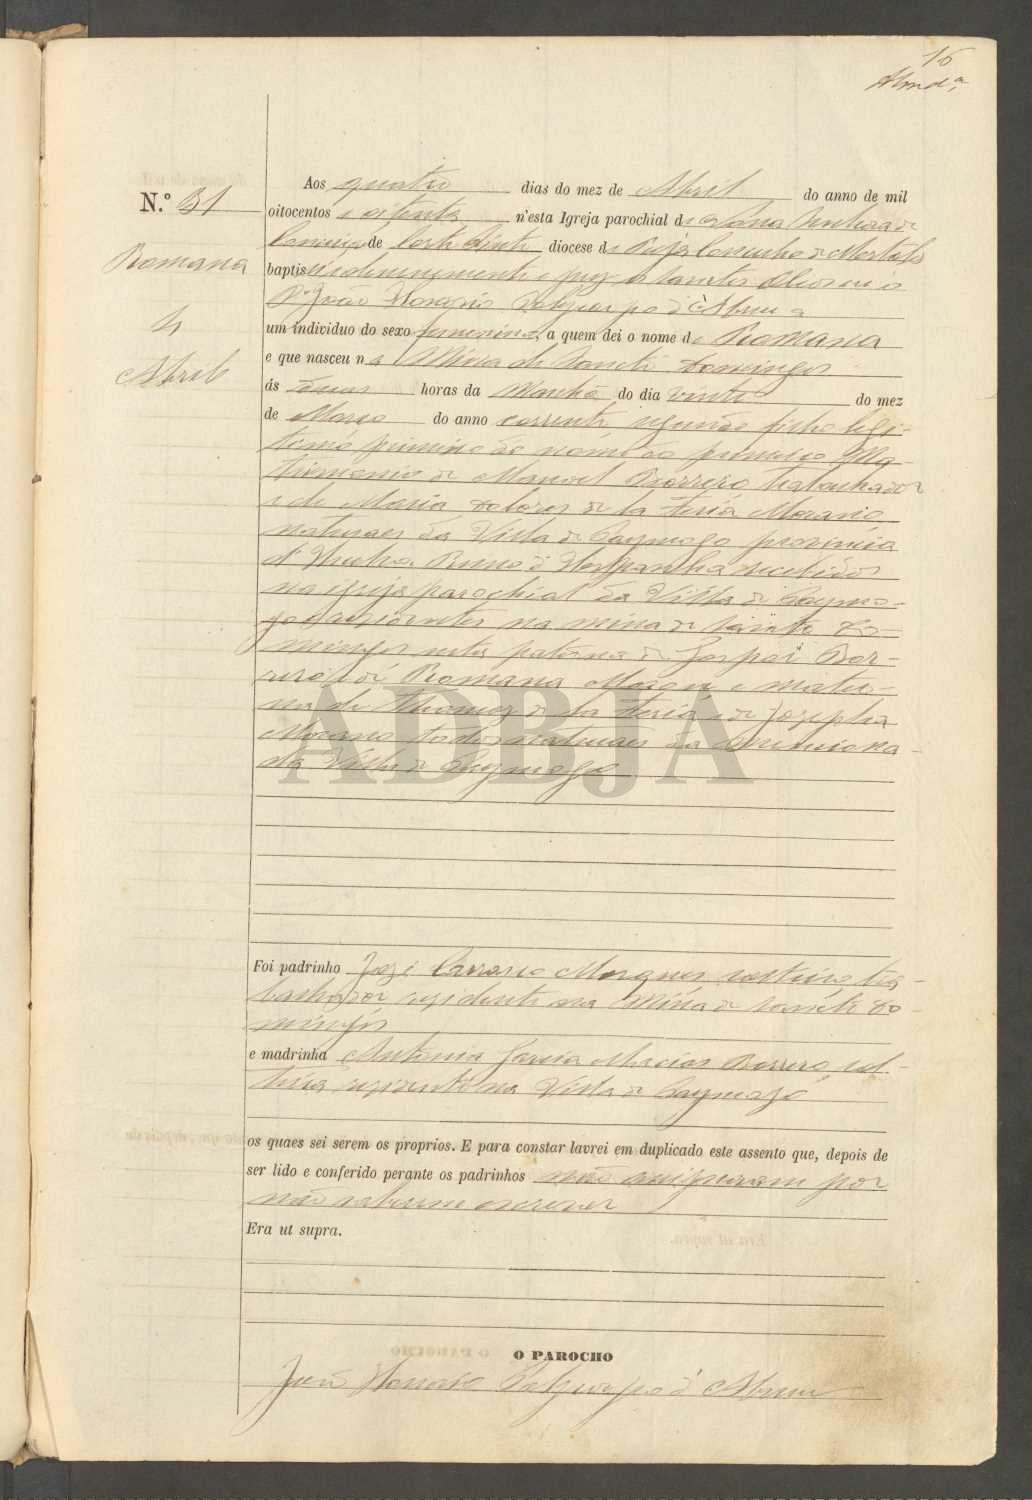 16
Almd.ª
Aos quatro dias do mez de Abril do anno de mil
N.º 31
oitocentos e oitenta n'esta Igreja parochial de Nossa Senhora da
Conceição de Corte do Pinto diocese de Beja Concelho de Mertola
Romana
baptisei solemnemente e puz os Santos Oleos eu o
P.e João Honorio d'Abreu a
um individuo do sexo femenino, a quem dei o nome de Romana
4
e que nasceu na Mina de Sancto Domingos
Abril
ás horas da Manhã do dia vinte do mez
de Março do anno corrente segundo filho legi-
timo primeiro do nome do primeiro Ma-
trimonio de Manoel Borrero trabalhador
e de Maria Dolores de la Feria Morano
naturaes da Villa de Paymogo provincia
d'Huelva Reino d'Hespanha recebidos
na igreja parochial da Villa de Paymo-
go residentes na mina de Santo Do-
mingos neta paterna de Gaspar Bor-
rero e de Romana e mater-
na de de la Feria e de Josepha
Morano todos naturaes da menciona-
da Villa de Paymogo
ADBJA
Foi padrinho José Marques solteiro tra-
balhador residente na Mina de Santo Do-
mingos
e madrinha Antonia Garcia Macias Borrero, sol-
teira residente na Villa de Paymogo
os quaes sei serem os proprios. E para constar lavrei em duplicado este assento que, depois de
ser lido e conferido perante os padrinhos não assignaram por
não saberem escrever
Era ut supra.
O PAROCHO
João Honorio d'Abreu